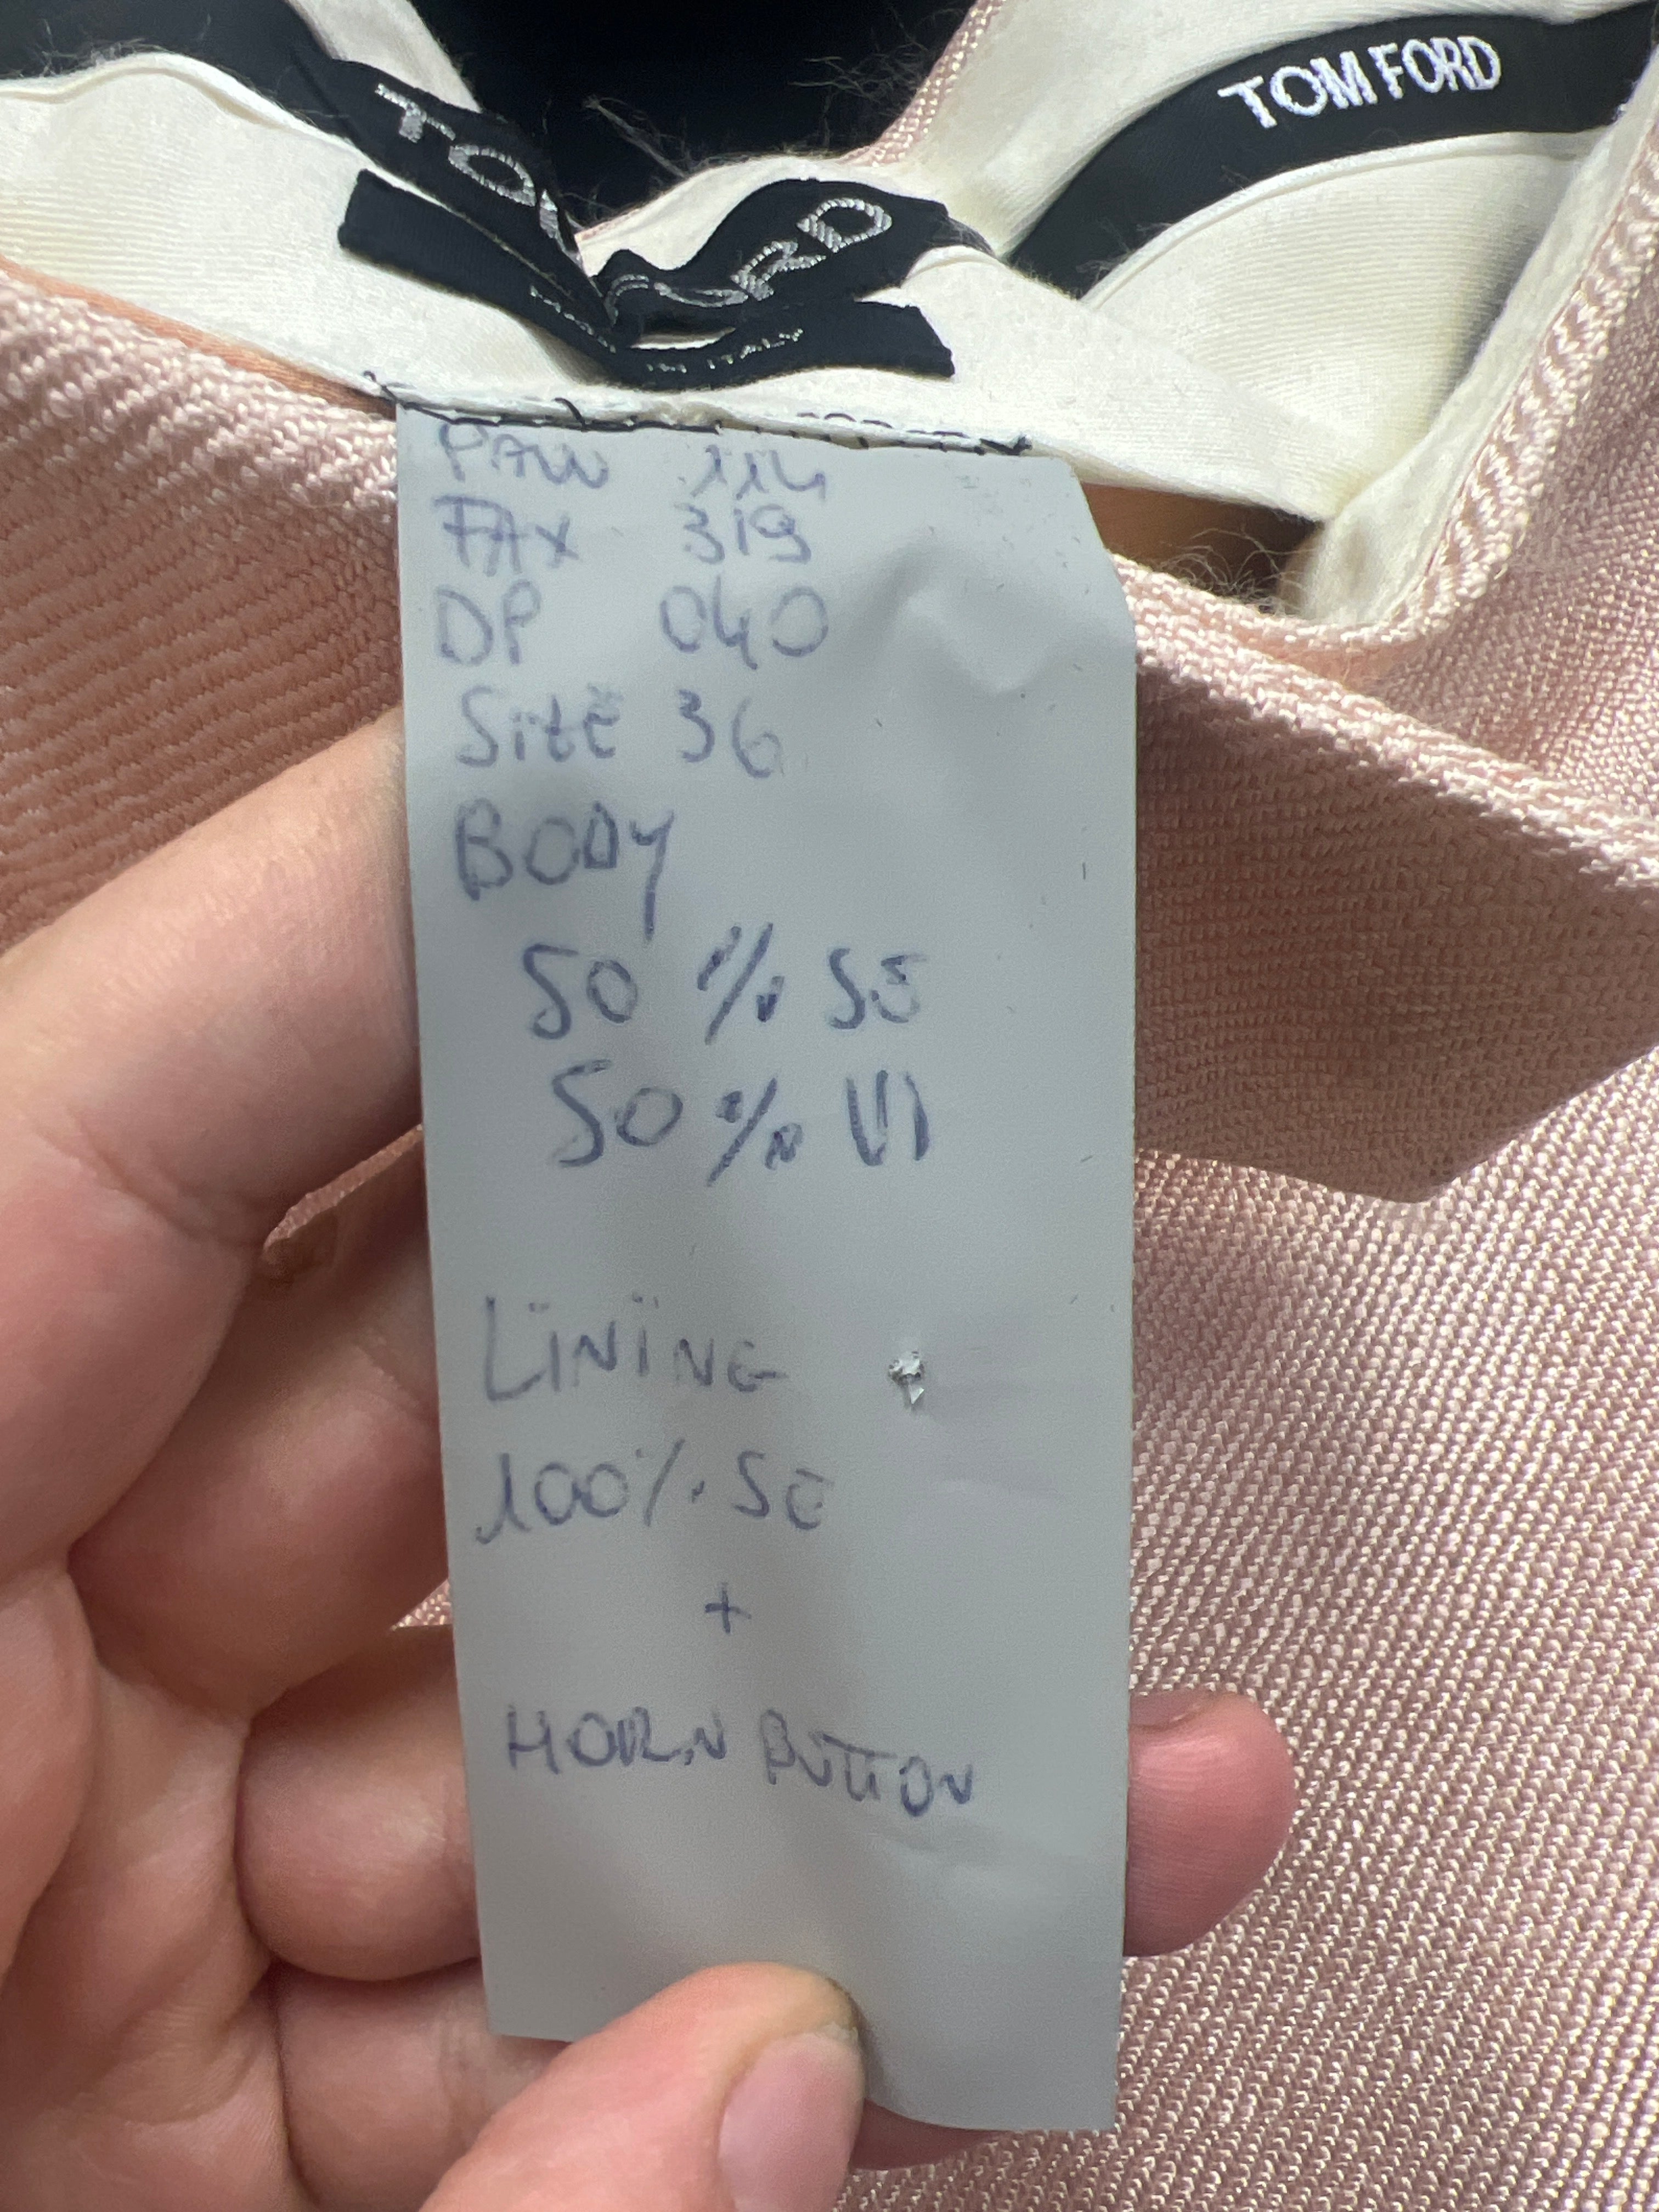 TOM FORD
TO RD
IN ITALY
PAW 114
FAX 319
DP 040
Size 36
BODY
50 % SE
50 % VI
LINING
100% SE
+
HORN BUTTON